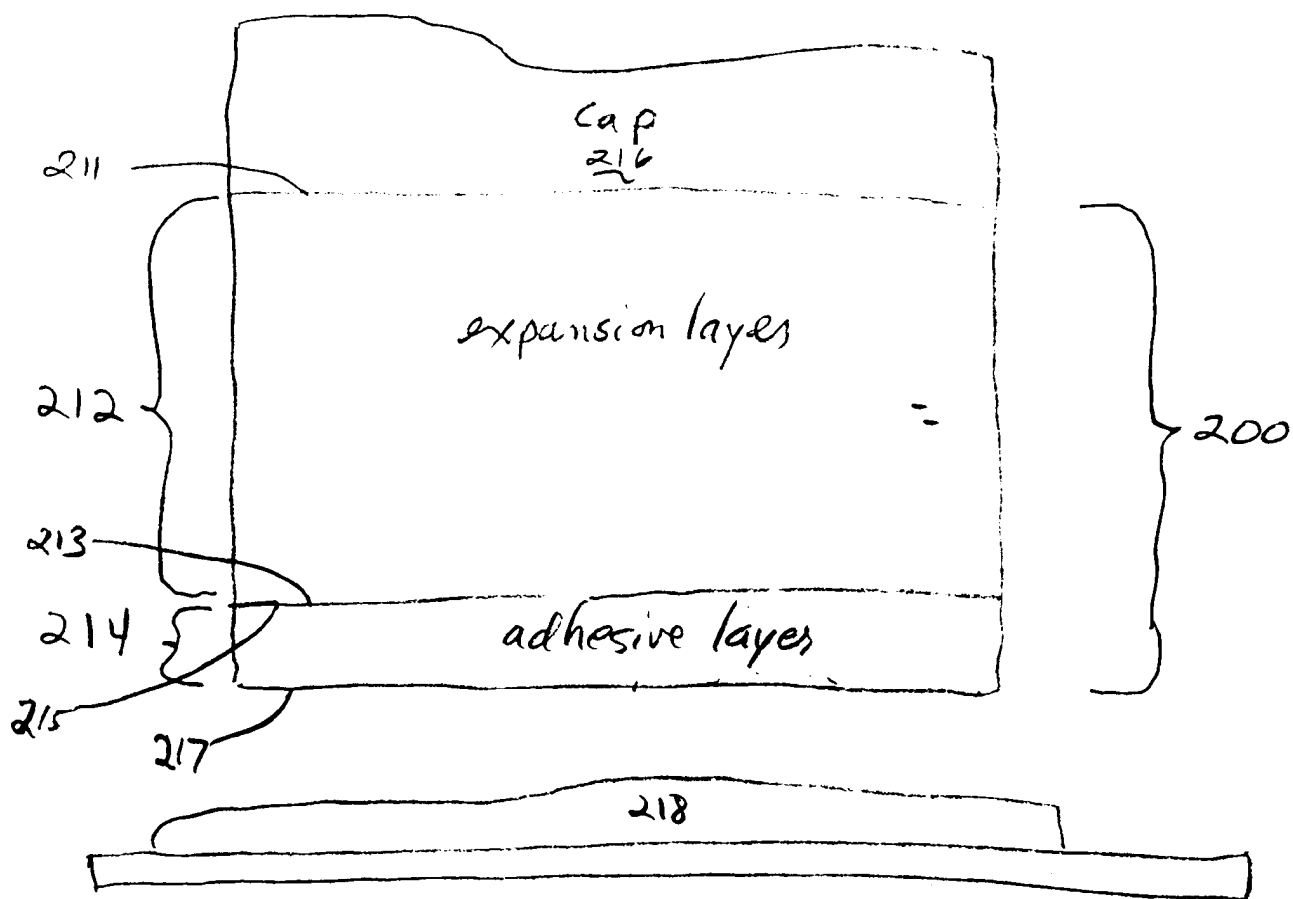 Cap
216
211
expansion layer
212
200
213
214
adhesive layer
215
217
218